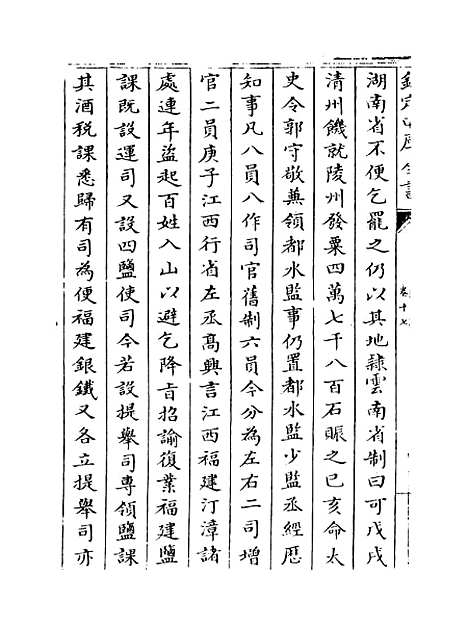 欽定四庫全書
卷十七
湖南省不便乞罷之仍以其地隸雲南省制曰可戊戌
清州饑就陵州發粟四萬七千八百石賑之己亥命太
史令郭守敬兼領都水監事仍置都水監少監丞經歴
知事凡八員八作司官舊制六員今分為左右二司增
官二員庚子江西行省左丞高興言江西福建汀漳諸
處連年盜起百姓入山以避乞降旨招諭復業福建鹽
課既設運司又設四鹽使司今若設提舉司專領鹽課
其酒税課悉歸有司為便福建銀鐵又各立提舉司亦